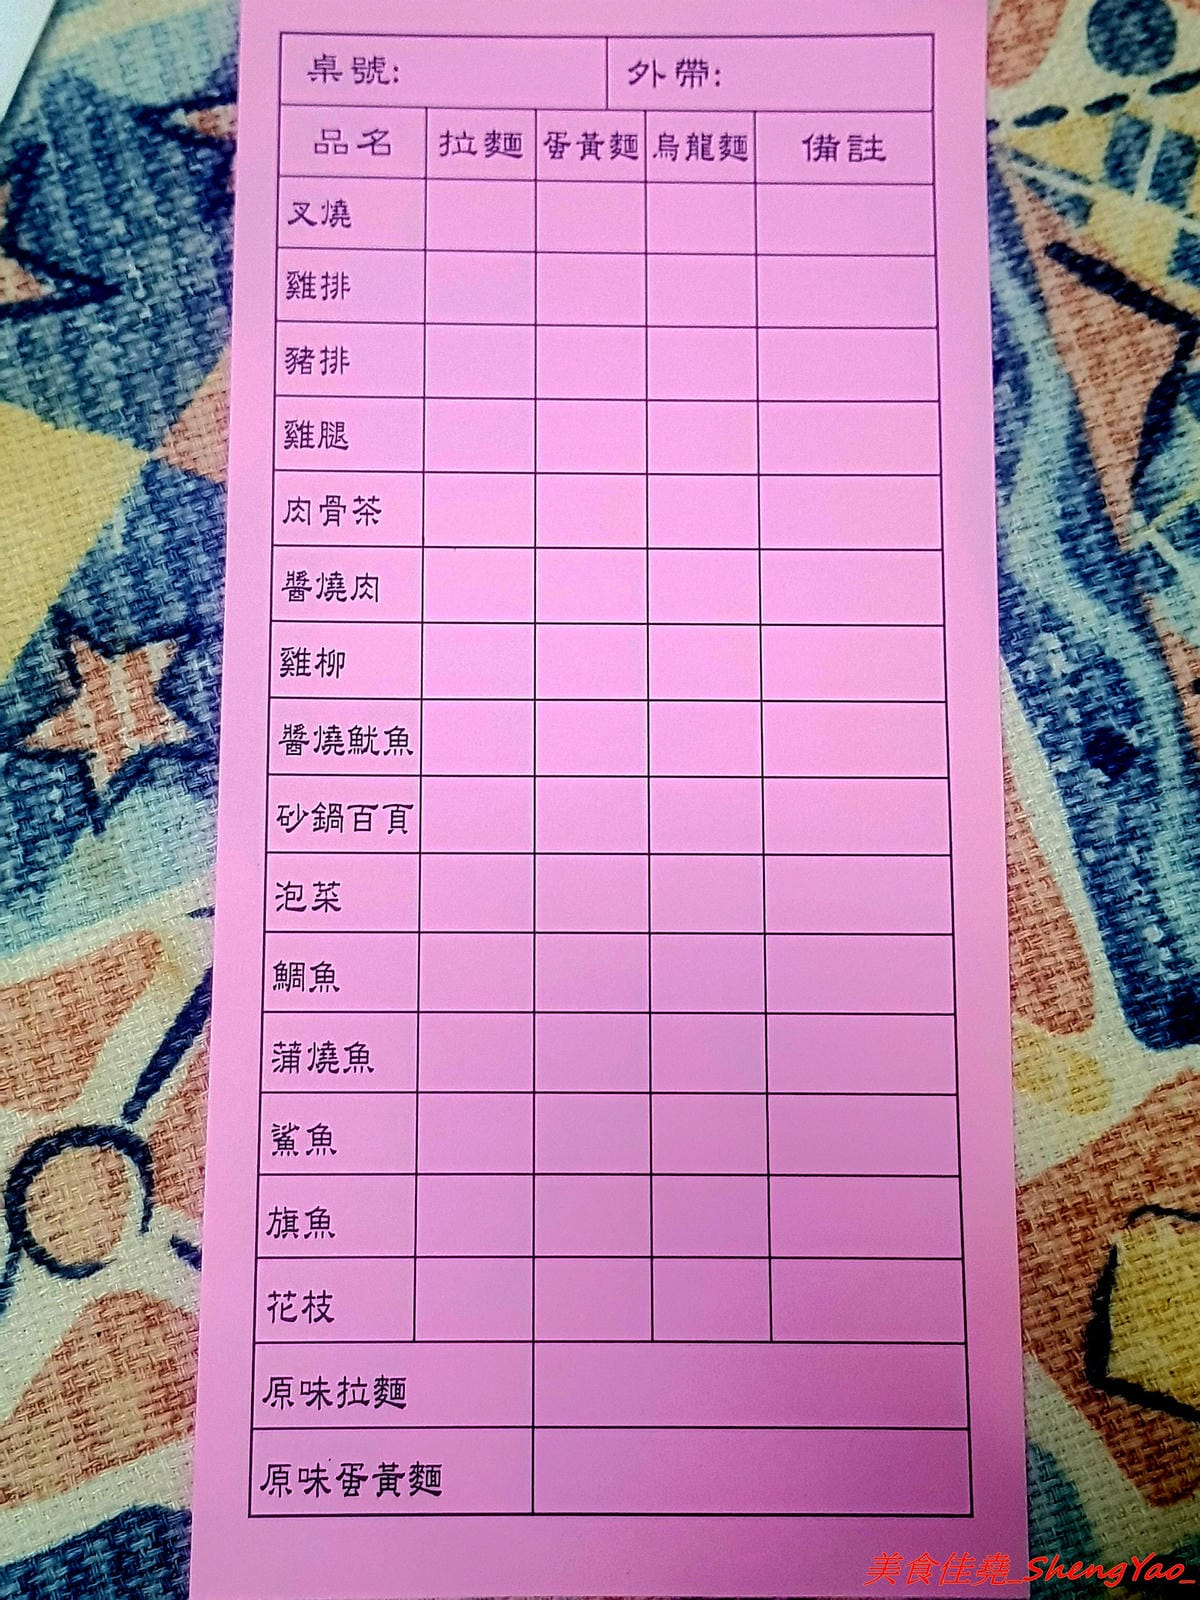 桌號: 外帶:
品名 拉麵 蛋黃麵 烏龍麵 備註
叉燒
雞排
豬排
雞腿
肉骨茶
醬燒肉
雞柳
醬燒魷魚
砂鍋百頁
泡菜
鯛魚
蒲燒魚
鯊魚
旗魚
花枝
原味拉麵
原味蛋黃麵
美食佳堯_ShengYao_